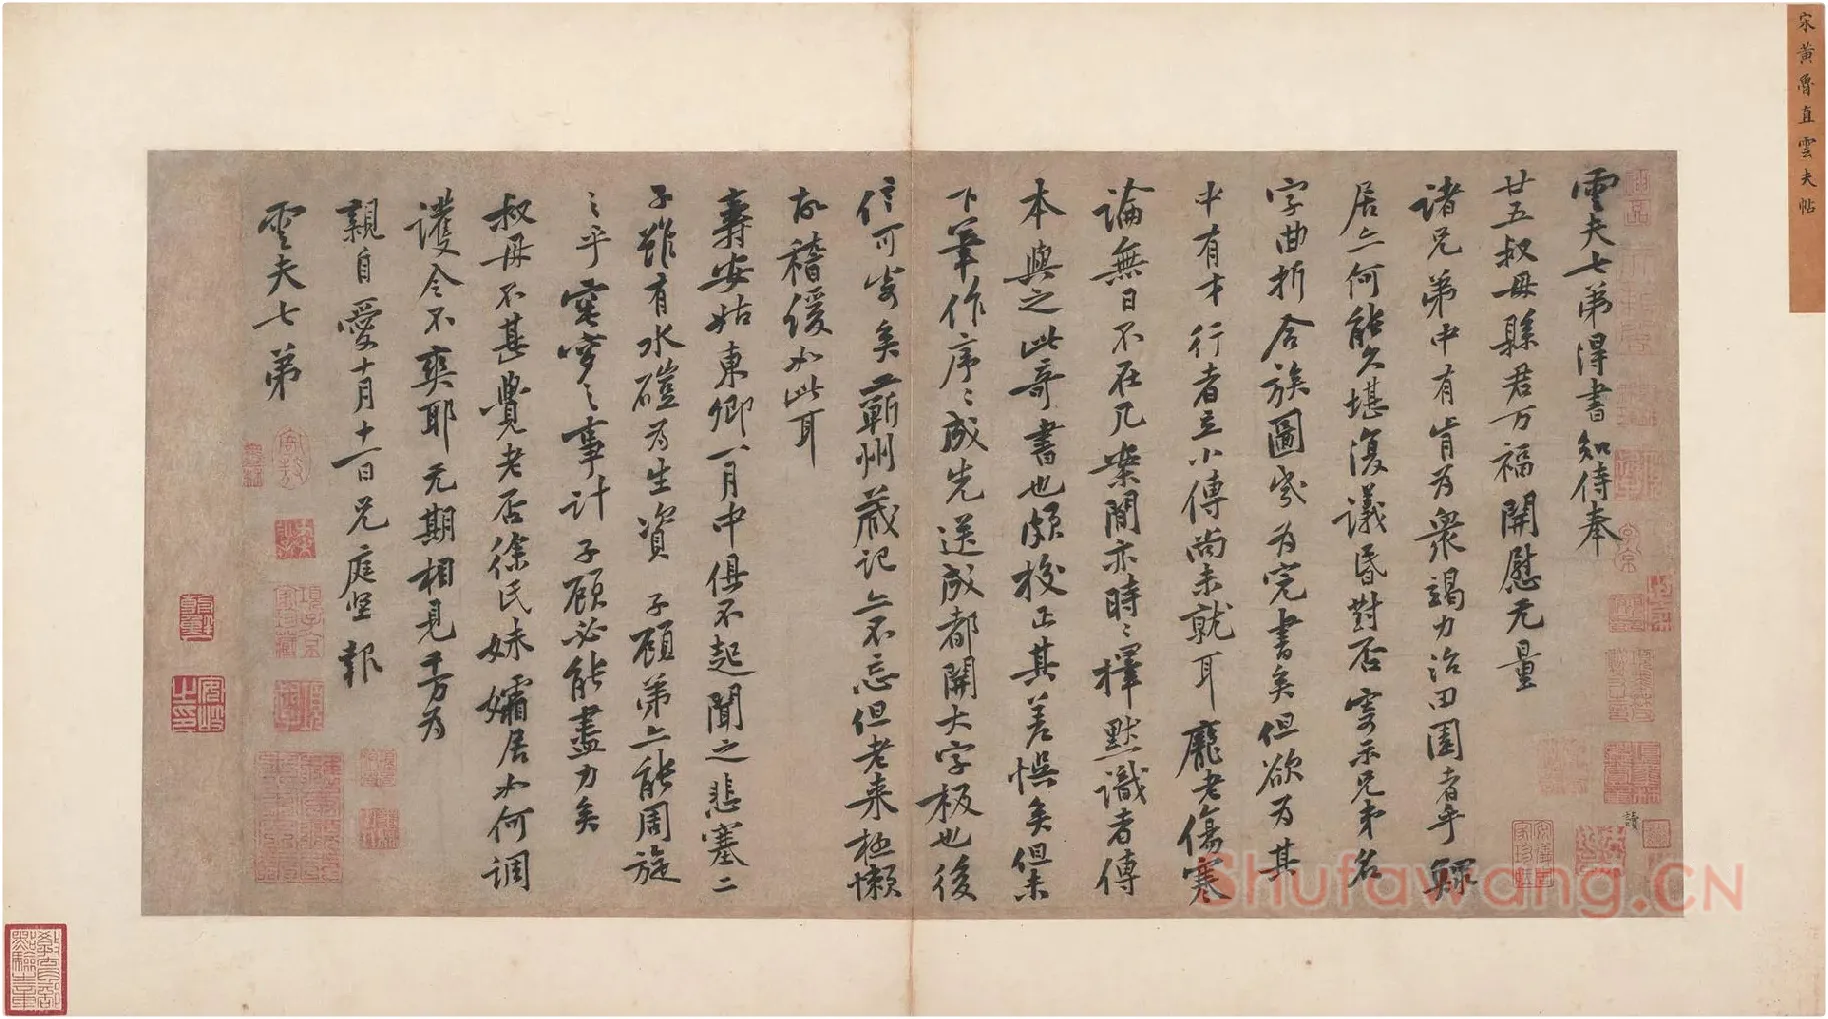 宋黃魯直雲夫帖
雲夫七弟得書知侍奉
廿五叔母縣君万福開慰无量
諸兄弟中有肯为衆竭力治田園者乎鰥
居亦何能久堪復議昏對否寄示兄弟名
字曲折合族圖當为完書矣但欲为其
中有才行者立小傳尚未就耳龐老傷寒
論無日不在几案間亦時〻擇默識者傳
本與之此奇書也頗校正其差悞矣但未
下筆作序〻成先送成都開大字板也後
信可寄矣蘄州藏記亦不忘但老来極懶
故稽緩如此耳
壽安姑東卿一月中俱不起聞之悲塞二
子雖有水磑为生資子顧弟亦能周旋
之乎窀穸之事計子顧必能盡力矣
叔母不甚覺老否徐氏妹孀居如何調
護令不爽耶无期相見千万为
親自愛十月十一日兄庭坚報
雲夫七弟
讀
Shufawang.CN